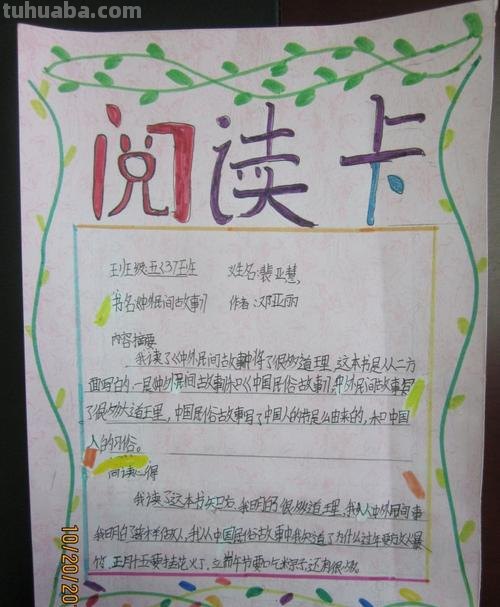 tuhuaba.com
阅读卡
班级五237班 姓名:裴亚慧
书名《中外民间故事》 作者:邓亚丽
内容摘要
我读了《中外民间故事》中得了很多道理,这本书是从二方
面写的,一是《中外民间故事》和《中国民俗故事》,中外民间故事写
了很多大道理,中国民俗故事写了中国人的节是么由来的,和中国
人的习俗。
阅读心得
我读了这本书我明白很多道理,我从中外民间事
我明白了,我从中国民俗故事中我知道了为什么过年要放火爆
竹,正月十五要挂花火丁,立端午节要吃米宗子还有很多。
10/20/20